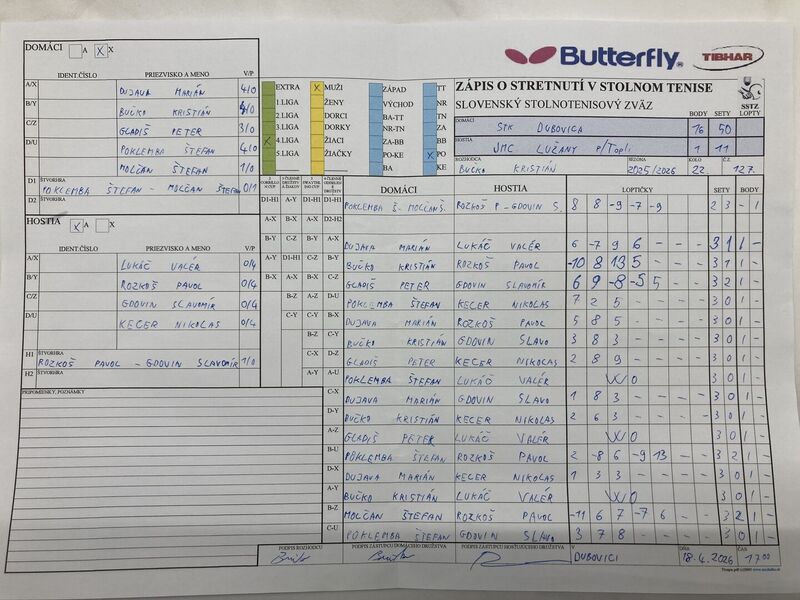 DOMÁCI A X X
IDENT.ČÍSLO PRIEZVISKO A MENO V/P
A/X DUJAVA MARIÁN 4/0
B/Y BUČKO KRISTIÁN 4/0
C/Z GLADIŠ PETER 3/0
D/U POKLEMBA ŠTEFAN 4/0
MOLČAN ŠTEFAN 1/0
D1 ŠTVORHRA POKLEMBA ŠTEFAN - MOLČAN ŠTEFAN 0/1
D2 ŠTVORHRA
HOSTIA X A X
IDENT.ČÍSLO PRIEZVISKO A MENO V/P
A/X LUKÁČ VALÉR 0/4
B/Y ROZKOŠ PAVOL 0/4
C/Z GDOVIN SLAVOMÍR 0/4
D/U KECER NIKOLAS 0/4
H1 ŠTVORHRA ROZKOŠ PAVOL - GDOVIN SLAVOMÍR 1/0
H2 ŠTVORHRA
PRIPOMIENKY, POZNÁMKY
Butterfly TIBHAR
EXTRA X MUŽI ZÁPAD TT
1.LIGA ŽENY VÝCHOD NR
2.LIGA DORCI BA-TT TN
3.LIGA DORKY NR-TN ZA
X 4.LIGA ŽIACI ZA-BB BB
5.LIGA ŽIAČKY PO-KE X PO
BA KE
ZÁPIS O STRETNUTÍ V STOLNOM TENISE
SLOVENSKÝ STOLNOTENISOVÝ ZVÄZ
SSTZ
BODY SETY LOPTY
DOMÁCI STK DUBOVICA 16 50
HOSTIA JMC LUŽANY P/TOPLI 1 11
ROZHODCA BUČKO KRISTIÁN SEZÓNA 2025/2026 KOLO 22. Č.Z. 127.
DOMÁCI HOSTIA LOPTIČKY SETY BODY
D1-H1 A-Y D1-H1 D1-H1 POKLEMBA Š - MOLČAN Š. ROZKOŠ P - GDOVIN S. 8 8 -9 -7 -9 2 3 - 1
A-X B-X A-X D2-H2
B-Y C-Z B-Y A-X DUJAVA MARIÁN LUKÁČ VALÉR 6 -7 9 6 - 3 1 1 -
A-Y D1-H1 C-Z B-Y BUČKO KRISTIÁN ROZKOŠ PAVOL -10 8 13 5 - 3 1 1 -
B-X A-X B-X C-Z GLADIŠ PETER GDOVIN SLAVOMÍR 6 9 -8 -5 5 3 2 1 -
B-Z A-Z D-U POKLEMBA ŠTEFAN KECER NIKOLAS 7 2 5 - - 3 0 1 -
C-Y C-Y B-X DUJAVA MARIÁN ROZKOŠ PAVOL 5 8 5 - - 3 0 1 -
B-Z C-Y BUČKO KRISTIÁN GDOVIN SLAVO 3 8 3 - - 3 0 1 -
C-X D-Z GLADIŠ PETER KECER NIKOLAS 2 8 9 - - 3 0 1 -
A-Y A-U POKLEMBA ŠTEFAN LUKÁČ VALÉR WO 3 0 1 -
C-X DUJAVA MARIÁN GDOVIN SLAVO 1 8 3 - - 3 0 1 -
D-Y BUČKO KRISTIÁN KECER NIKOLAS 2 6 3 - - 3 0 1 -
A-Z GLADIŠ PETER LUKÁČ VALÉR WO 3 0 1 -
B-U POKLEMBA ŠTEFAN ROZKOŠ PAVOL 2 -8 6 -9 13 - - 3 2 1 -
D-X DUJAVA MARIÁN KECER NIKOLAS 1 3 3 - - 3 0 1 -
A-Y BUČKO KRISTIÁN LUKÁČ VALÉR WO 3 0 1 -
B-Z MOLČAN ŠTEFAN ROZKOŠ PAVOL -11 6 7 -7 6 - 3 2 1 -
C-U POKLEMBA ŠTEFAN GDOVIN SLAVO 3 7 8 - - 3 0 1 -
PODPIS ROZHODCU PODPIS ZÁSTUPCU DOMÁCEHO DRUŽSTVA PODPIS ZÁSTUPCU HOSŤUJÚCEHO DRUŽSTVA V DUBOVICI DŇA 18.4.2026 ČAS 17:00